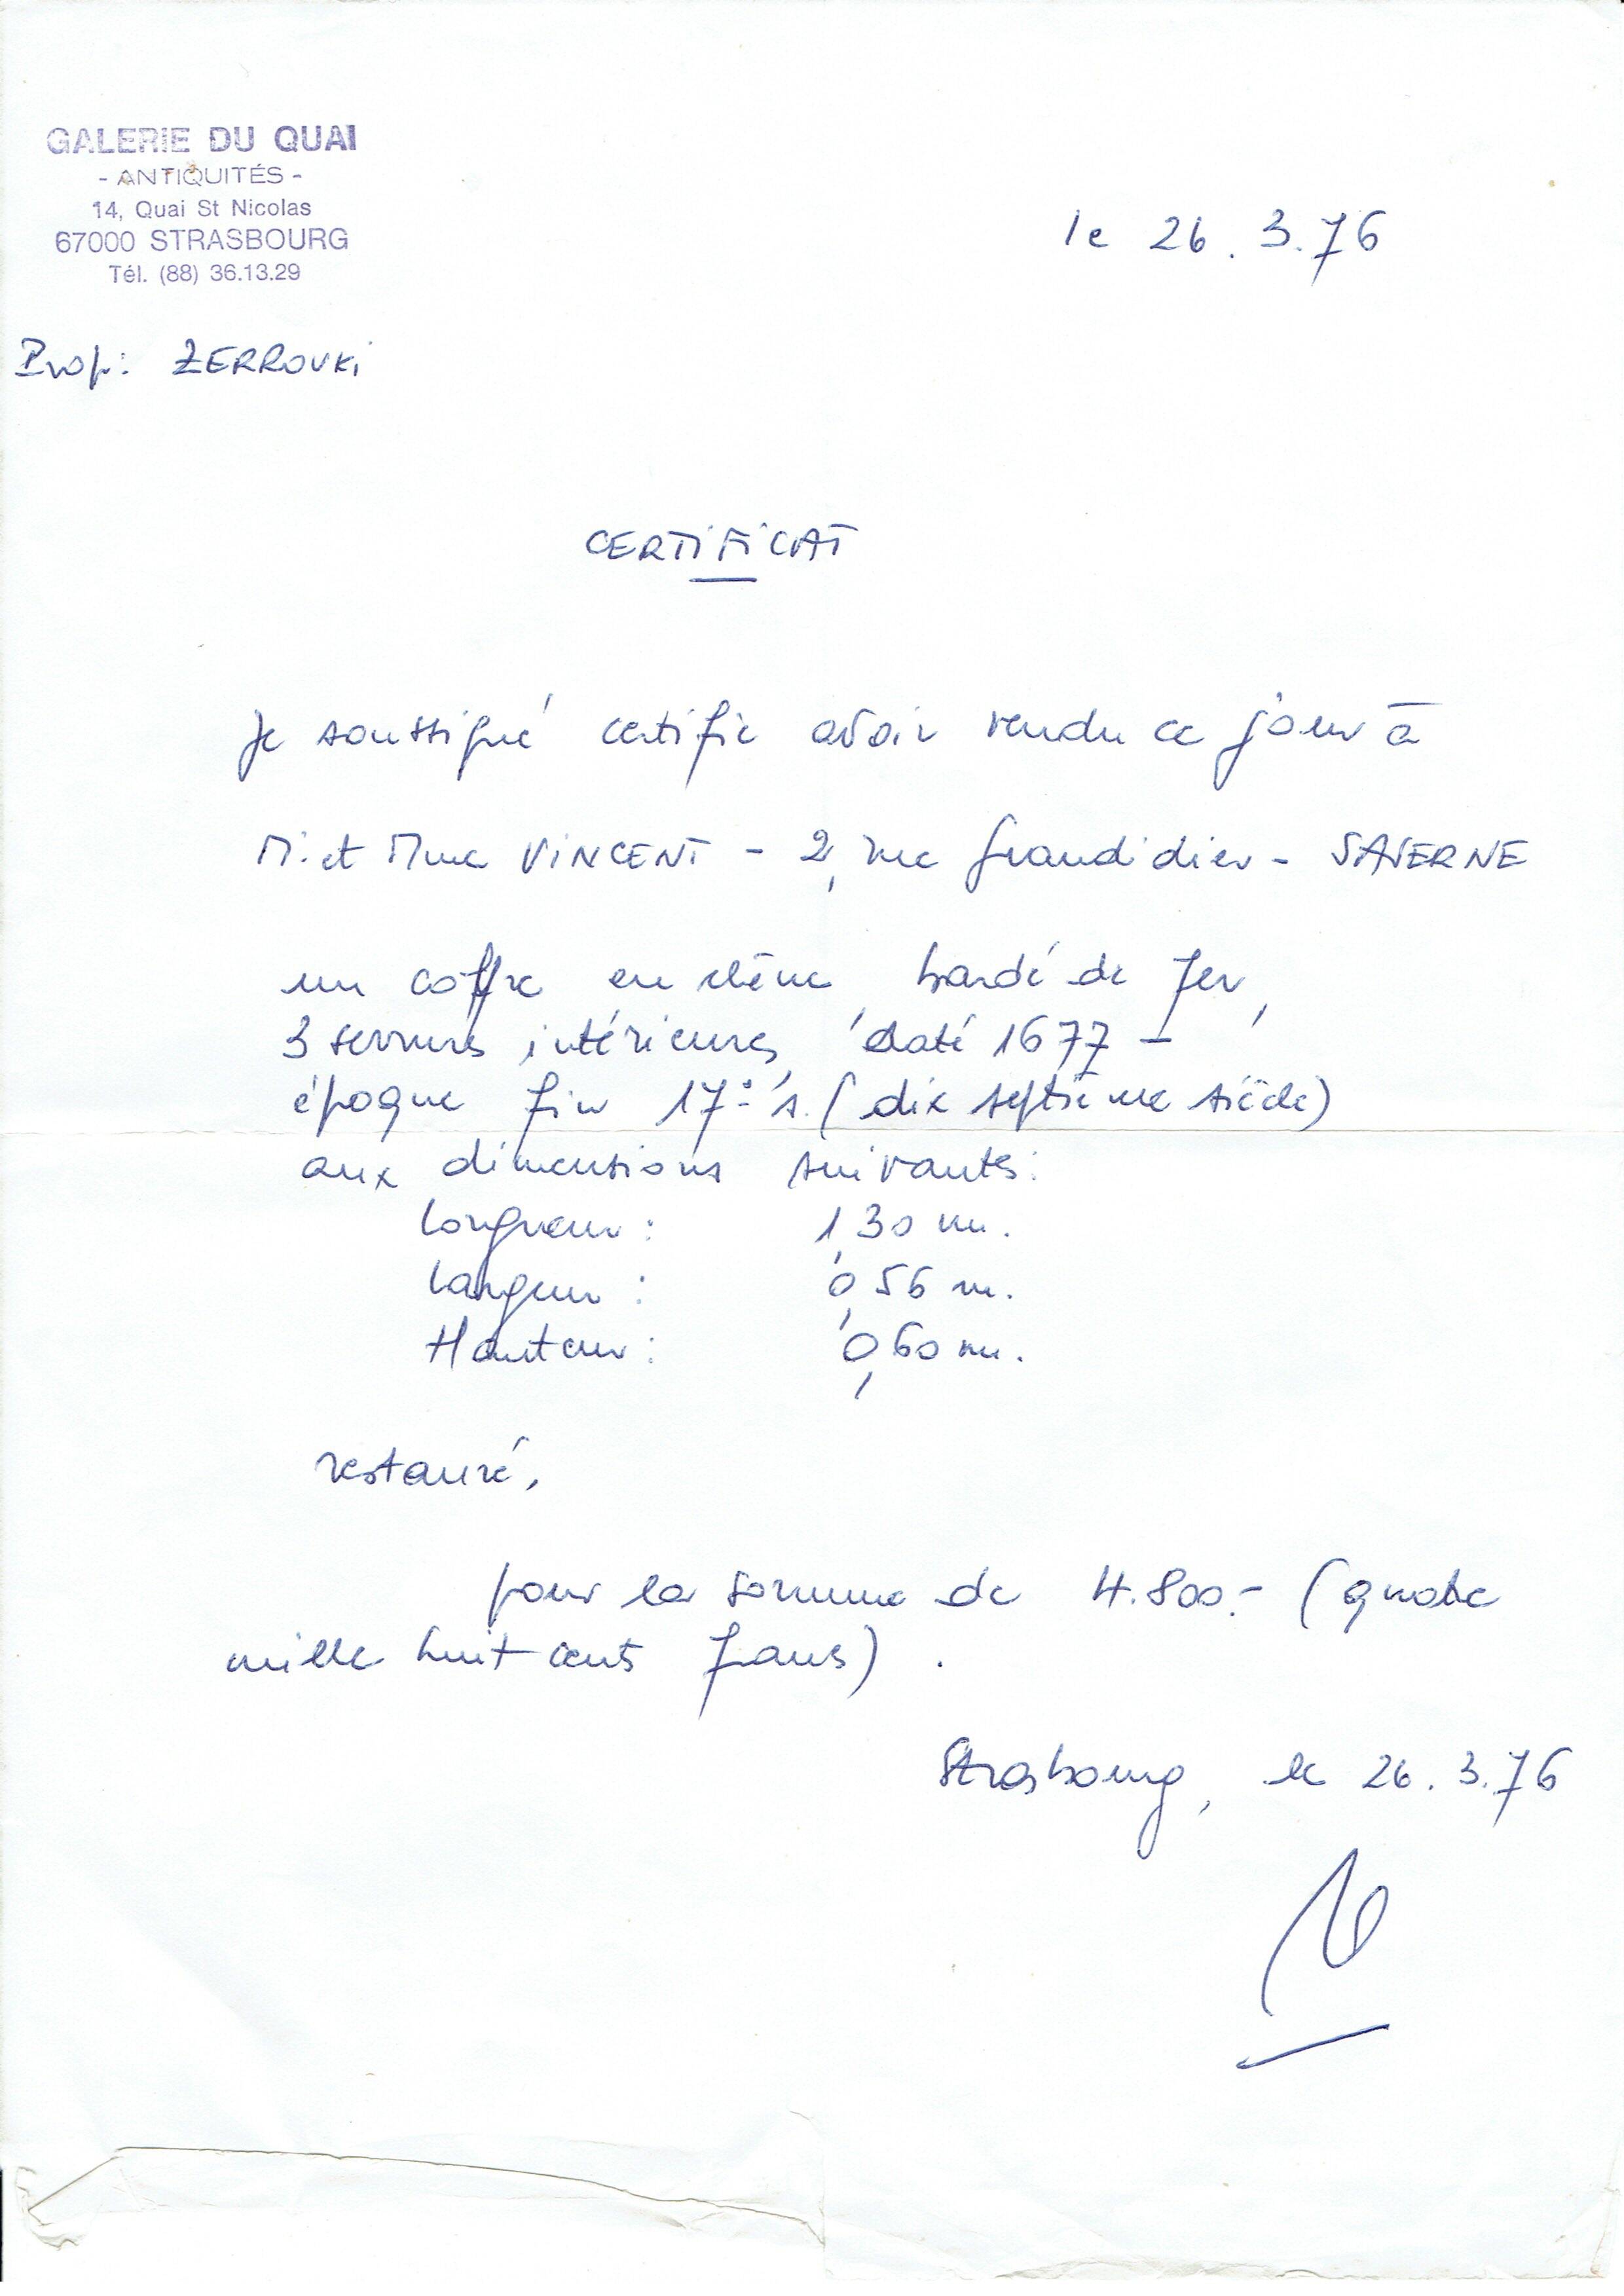 GALERIE DU QUAI
- ANTIQUITÉS -
14, Quai St Nicolas
67000 STRASBOURG
Tél. (88) 36.13.29
le 26.3.76
Prop: ZERROUKi
CERTiFiCAT
Je soussigné certifie avoir vendu ce jour à
M. et Mme ViNCENT - 2, rue Grandidier - SAVERNE
un coffre en chêne bardé de fer,
3 serrures intérieures, daté 1677 -
époque fin 17° s. (dix septième siècle)
aux dimensions suivantes:
Longueur : 1,30 m.
Largeur : 0,56 m.
Hauteur : 0,60 m.
restauré,
pour la somme de 4.800.- (quatre
mille huit cents francs).
Strasbourg, le 26.3.76